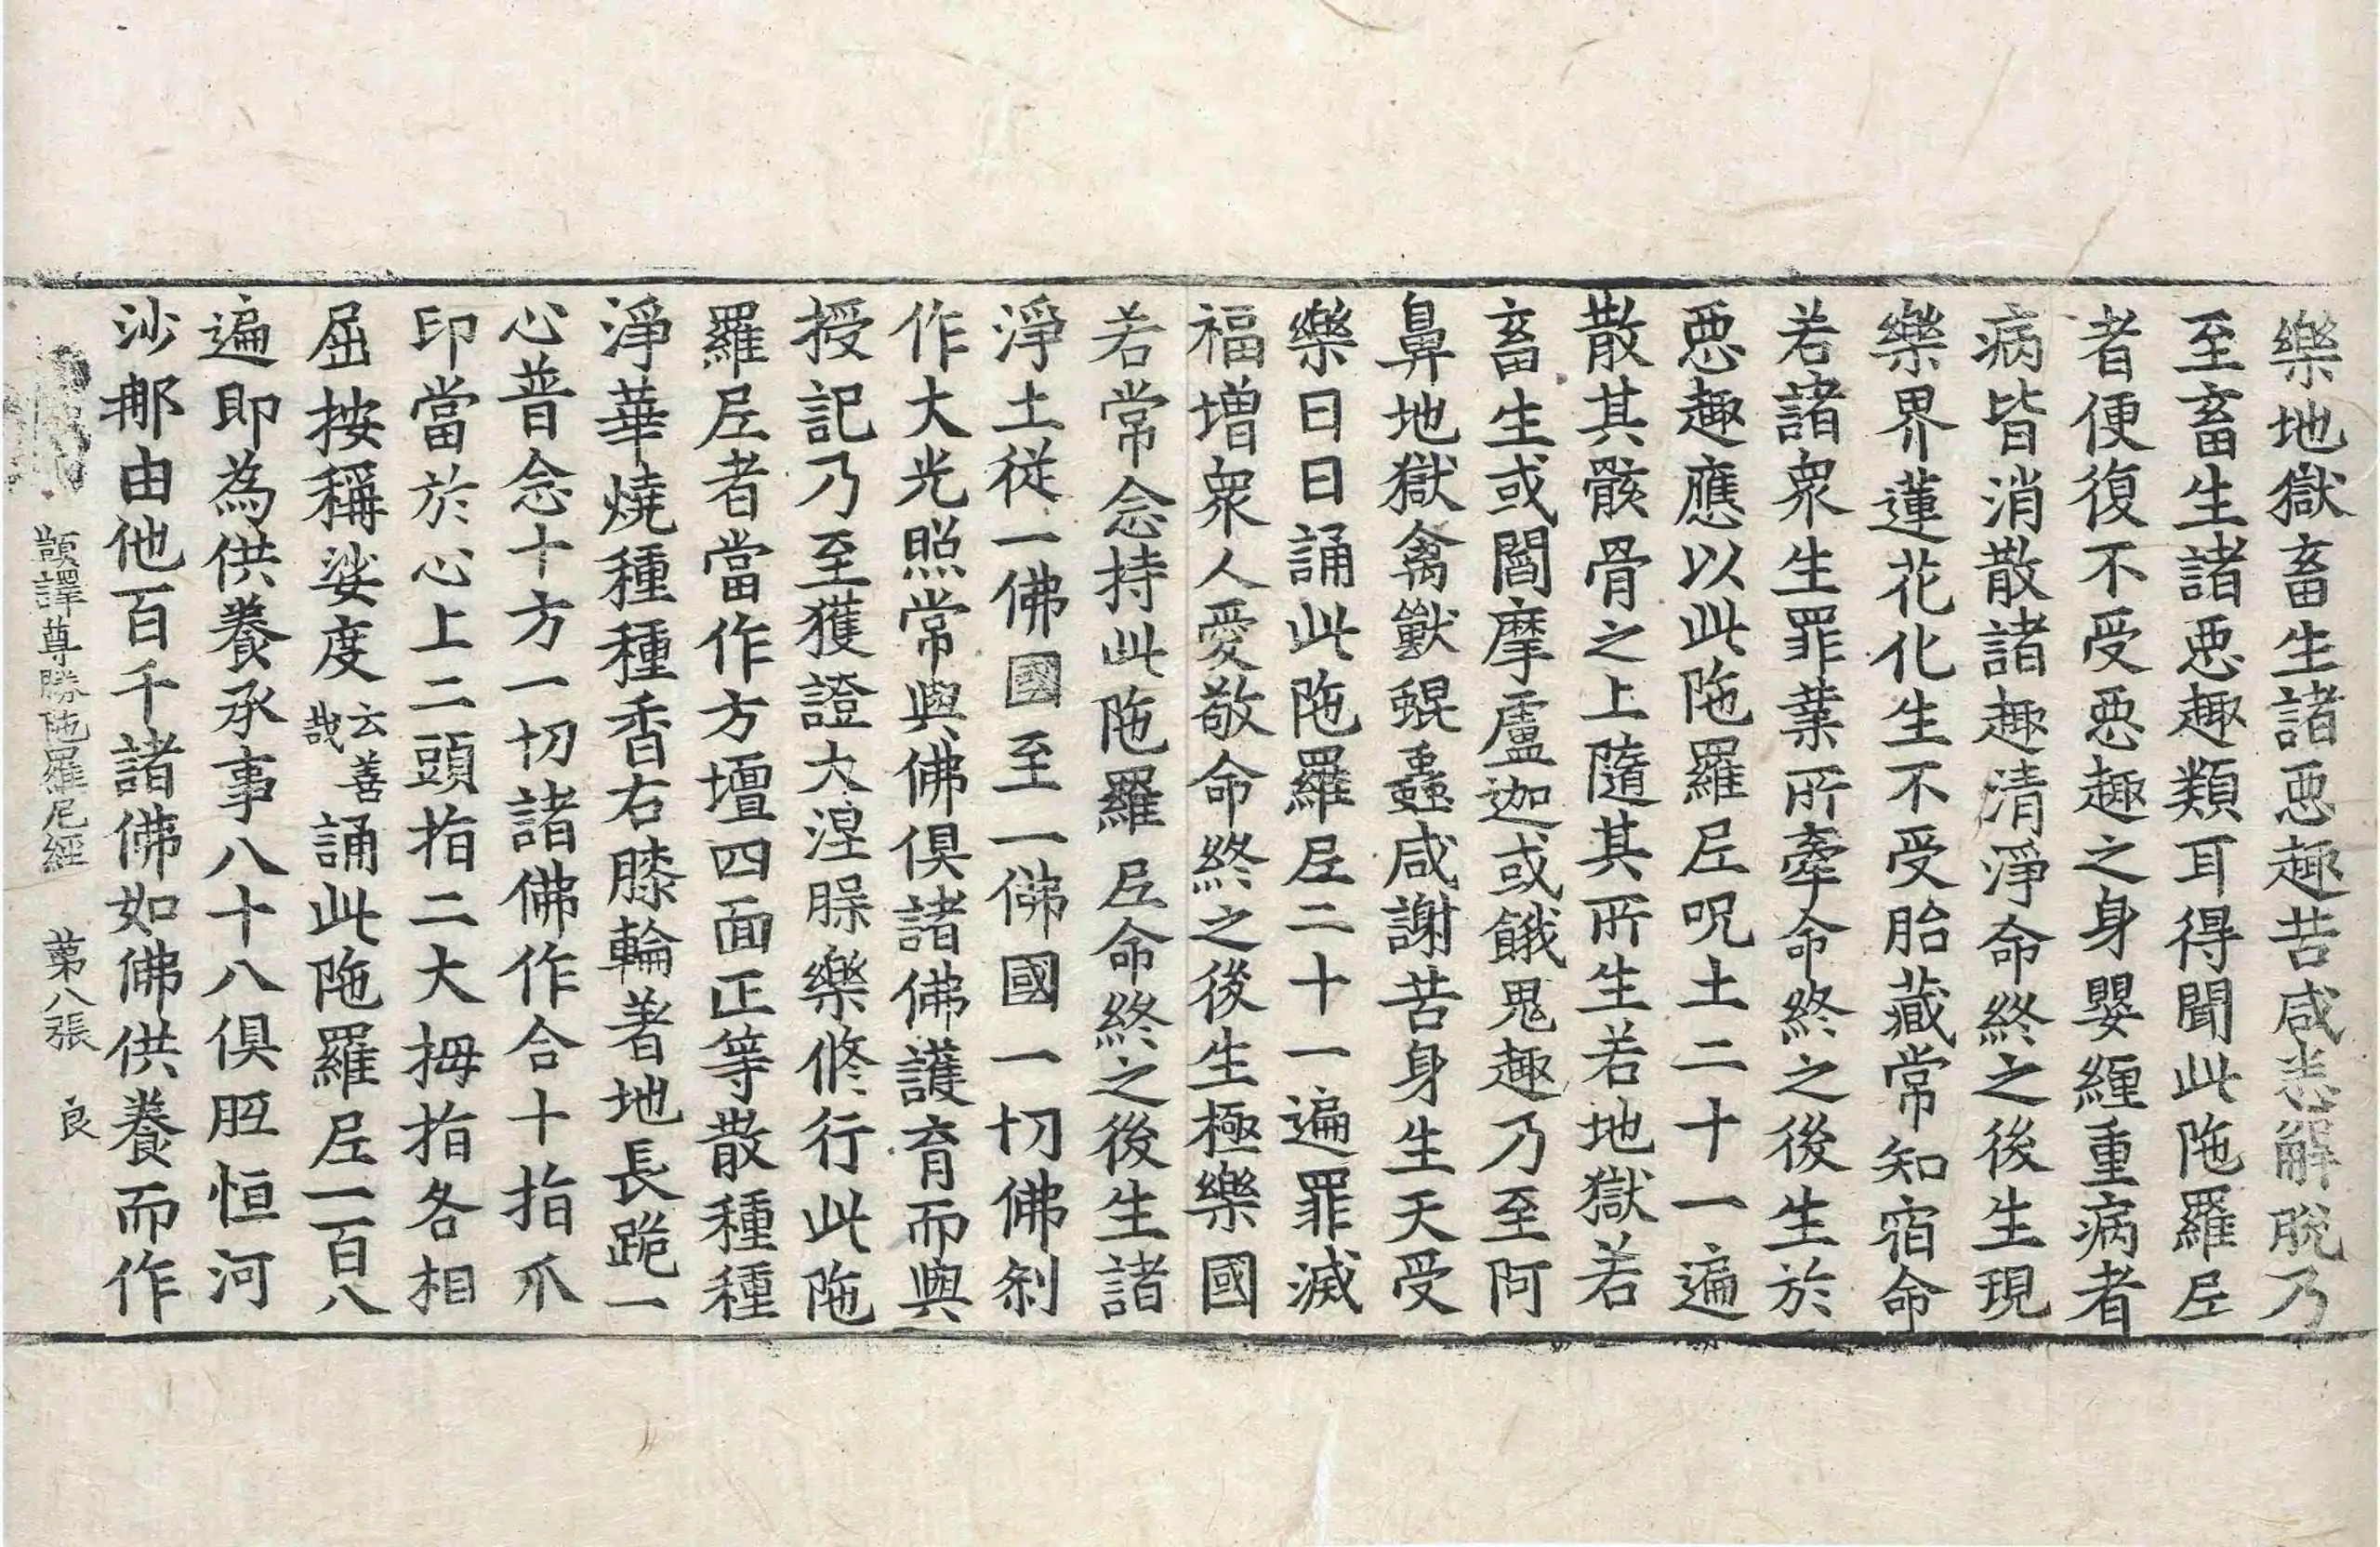 樂地獄畜生諸惡趣苦咸悉解脫乃
至畜生諸惡趣類耳得聞此陁羅𡰱
者便復不受惡趣之身嬰纏重病者
病皆消散諸趣清淨命終之後生現
樂界蓮花化生不受胎藏常知宿命
若諸衆生罪業所牽命終之後生於
惡趣應以此陁羅𡰱呪土二十一遍
散其骸骨之上隨其所生若地獄若
畜生或閻摩盧迦或餓鬼趣乃至阿
鼻地獄禽獸蜫蟲咸謝苦身生天受
樂日日誦此陁羅𡰱二十一遍罪滅
福增衆人愛敬命終之後生極樂國
若常念持此陁羅𡰱命終之後生諸
淨土從一佛國至一佛國一切佛剎
作大光照常與佛俱諸佛護育而與
授記乃至獲證大涅槃樂修行此陁
羅𡰱者當作方壇四面正等散種種
淨華燒種種香右膝輪著地長跪一
心普念十方一切諸佛作合十指爪
印當於心上二頭指二大拇指各相
屈按稱娑度云善哉誦此陁羅𡰱一百八
遍即為供養承事八十八俱胝恒河
沙那由他百千諸佛如佛供養而作
顗譯尊勝陁羅尼經 苐八張 良